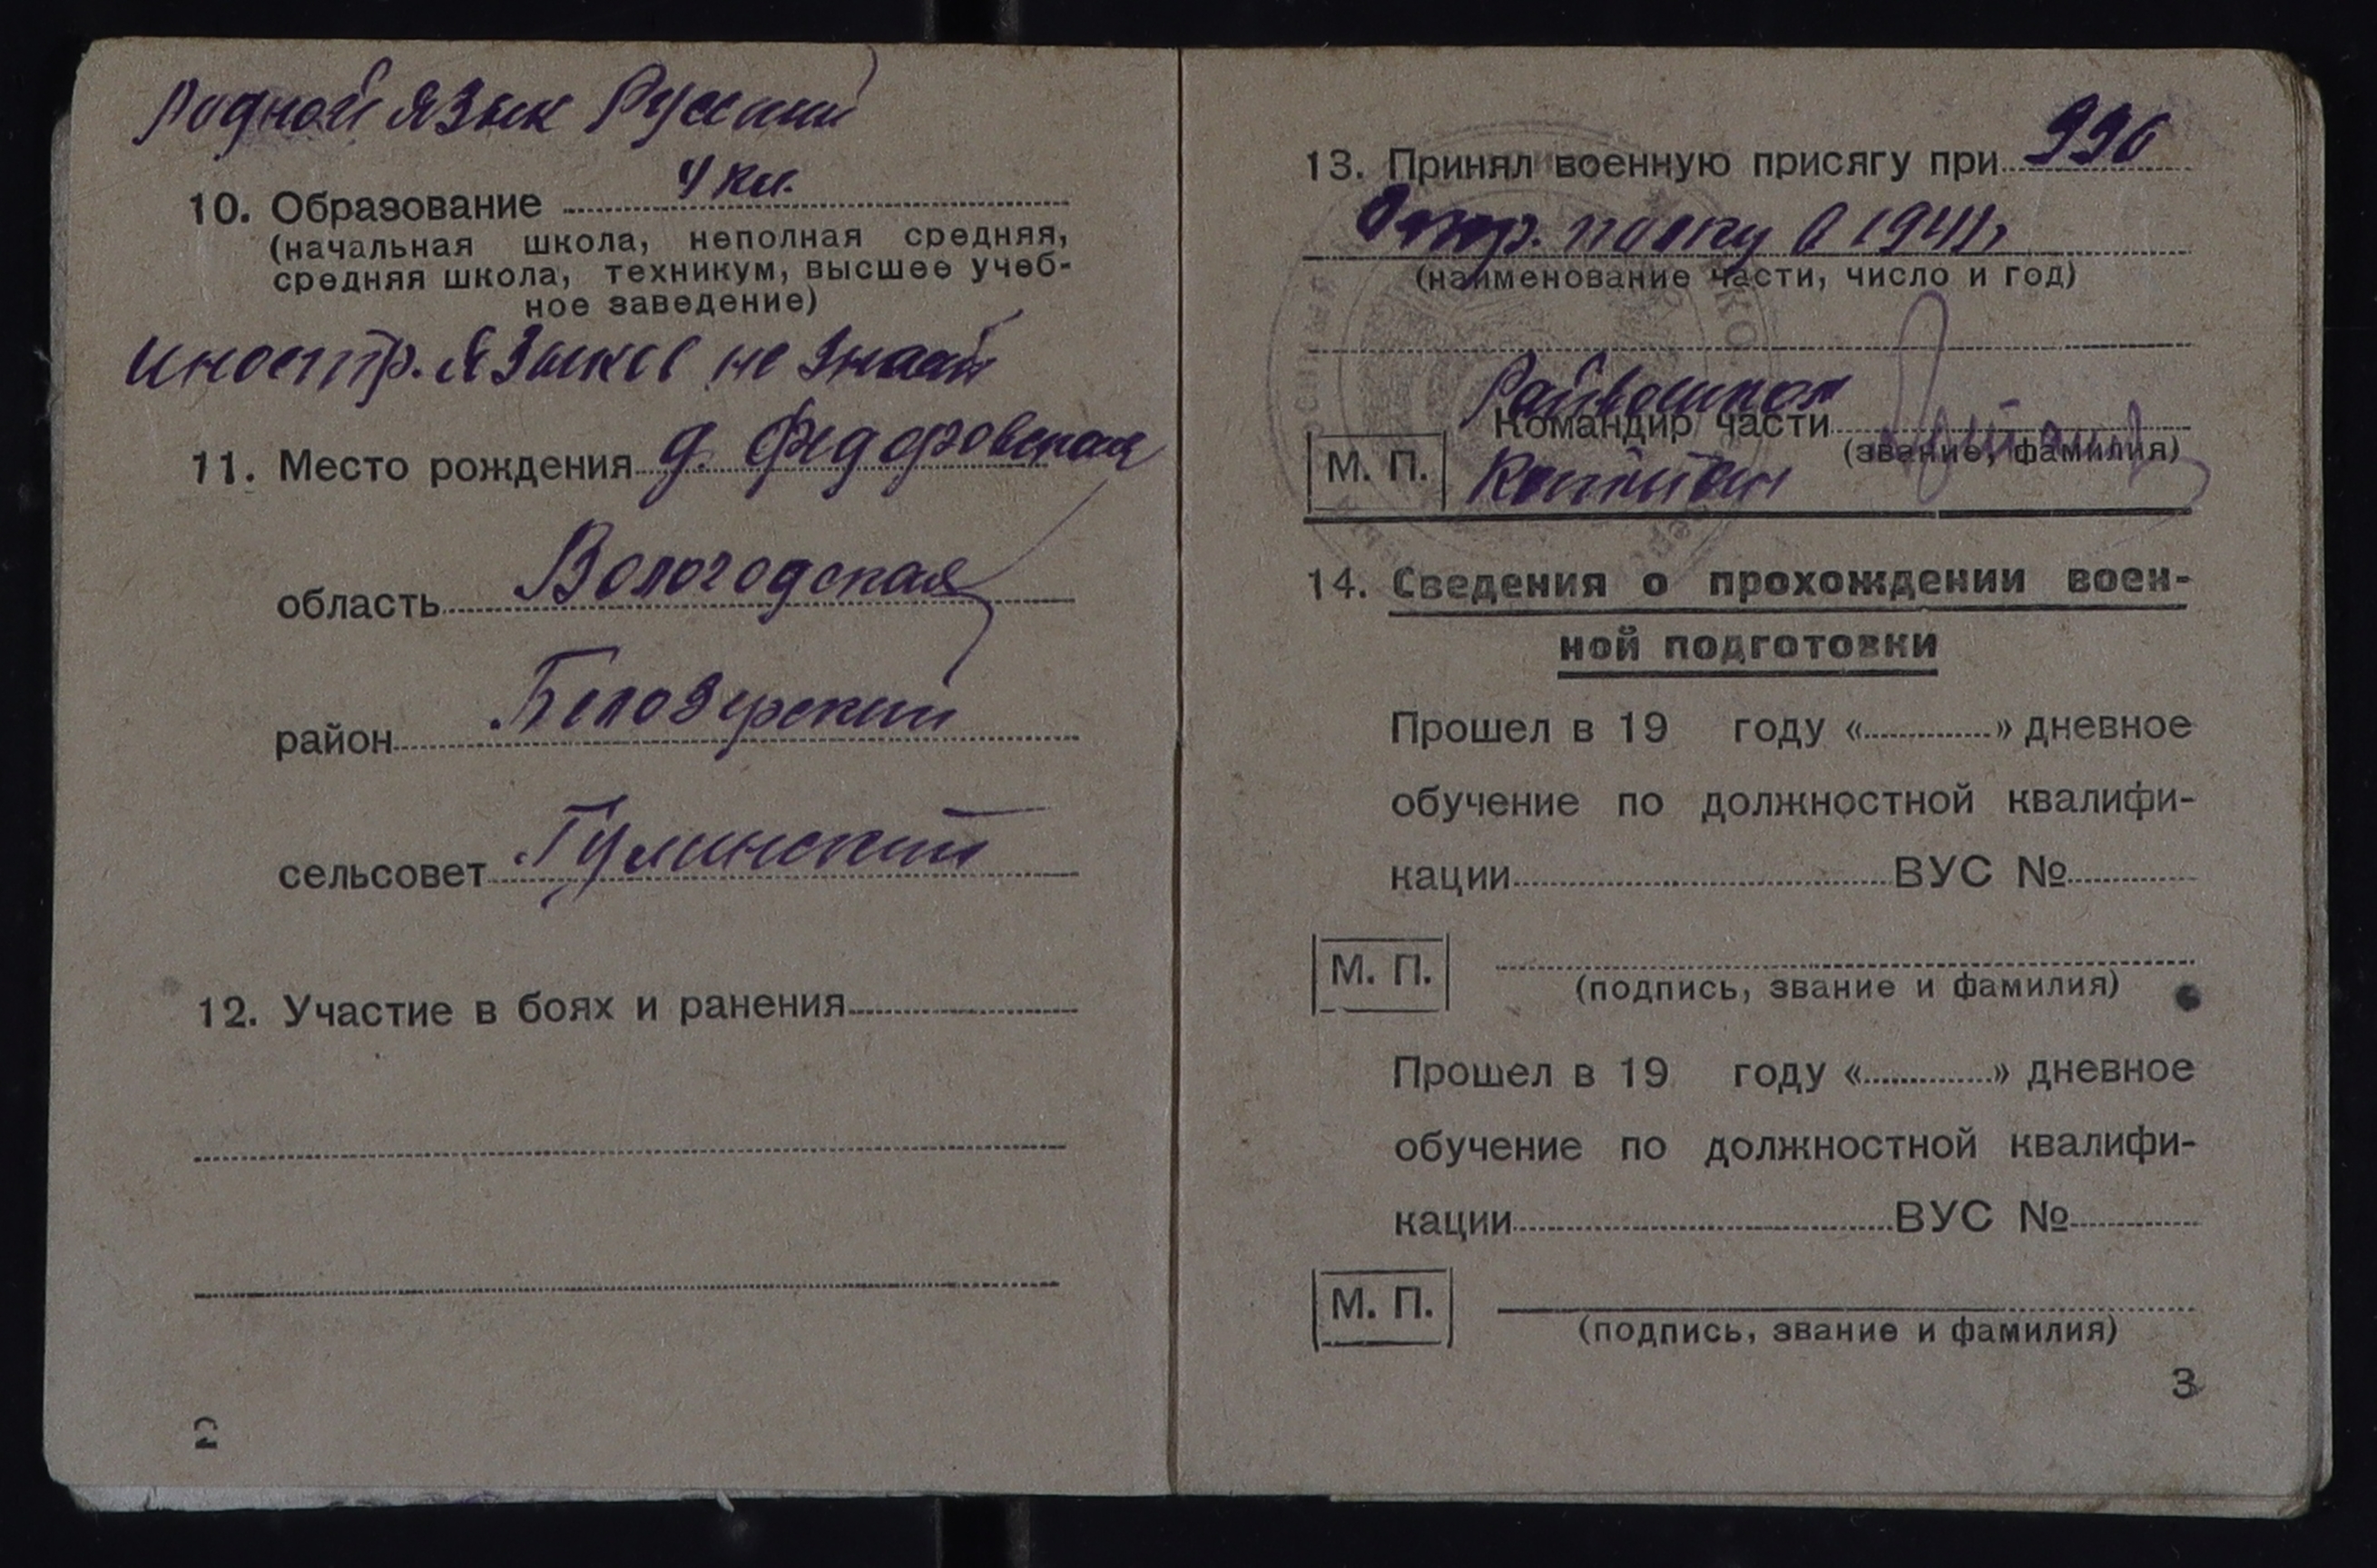 Родной язык Русский
10. Образование 4 кл.
(начальная школа, неполная средняя,
средняя школа, техникум, высшее учеб-
ное заведение)
иностр. языков не знает
11. Место рождения д. Федоровская
область Вологодская
район Белозерский
сельсовет Гулинский
12. Участие в боях и ранения
2
13. Принял военную присягу при 996
полку в 1941г
(наименование части, число и год)
Райвоенком
Командир части
(звание, фамилия)
М. П. Капитан
14. Сведения о прохождении воен-
ной подготовки
Прошел в 19 году « » дневное
обучение по должностной квалифи-
кации ВУС №
М. П.
(подпись, звание и фамилия)
Прошел в 19 году « » дневное
обучение по должностной квалифи-
кации ВУС №
М. П.
(подпись, звание и фамилия)
3